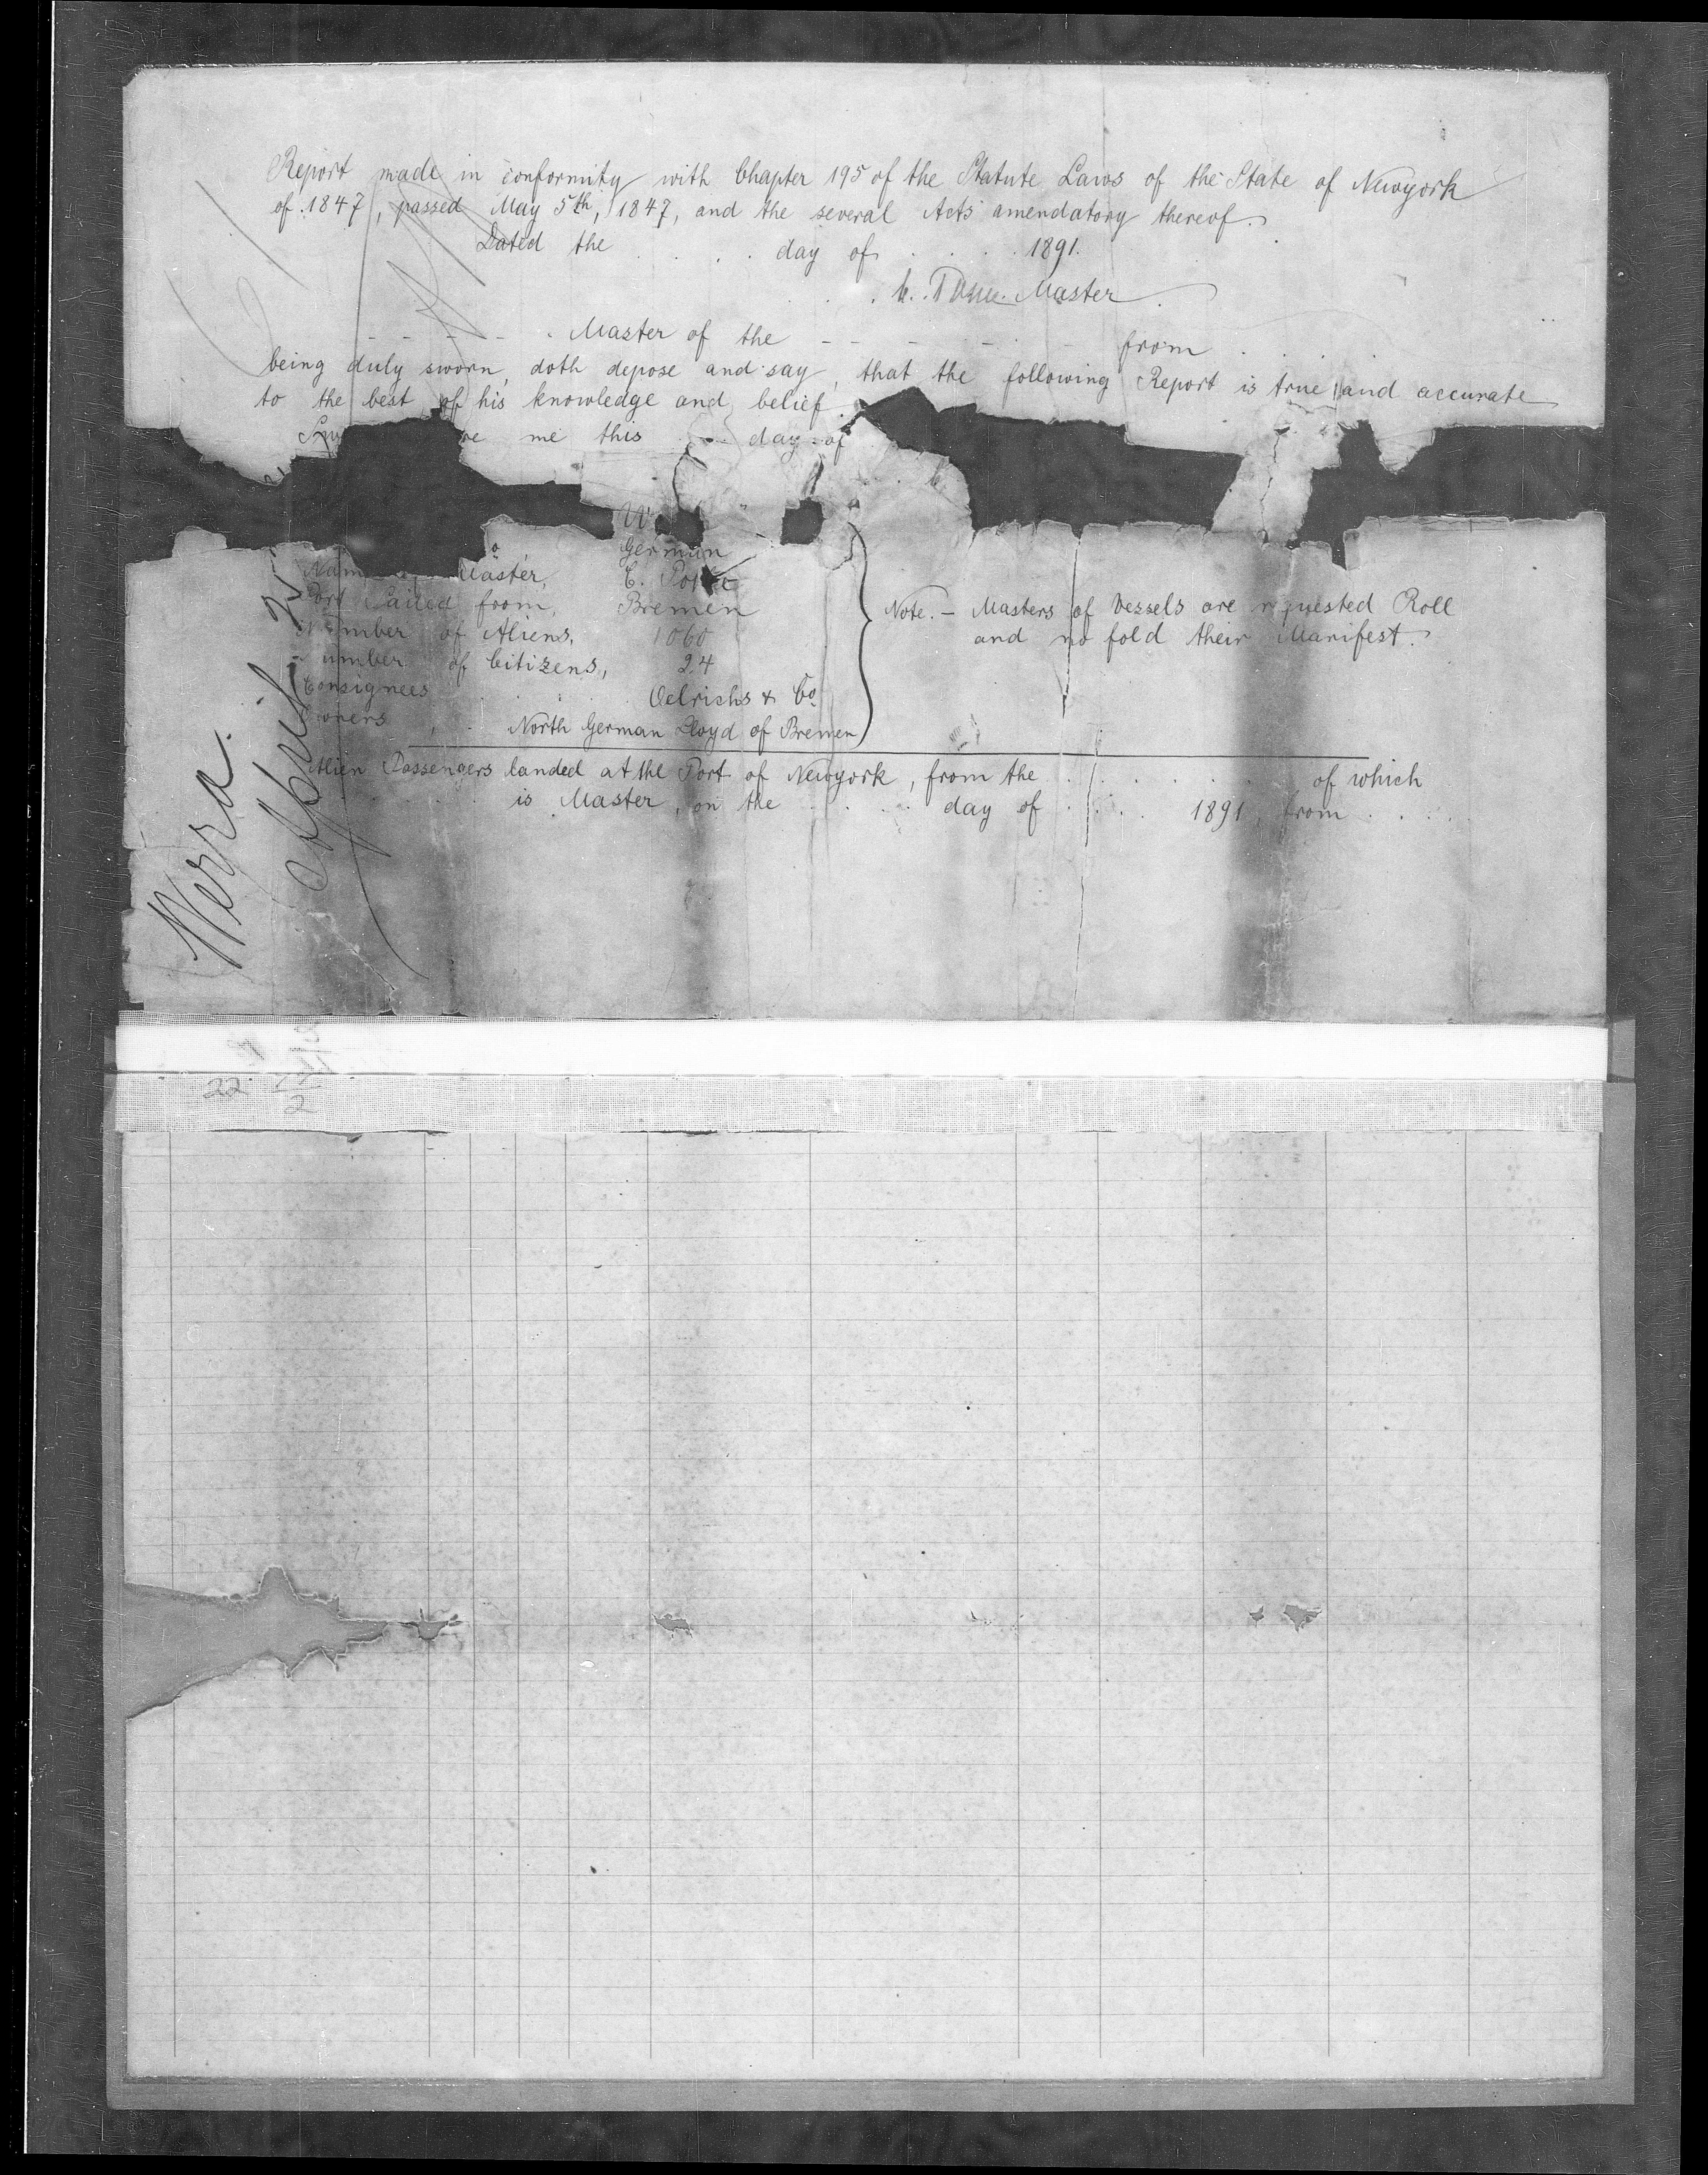 Report made in conformity with Chapter 195 of the Statute Laws of the State of Newyork
of 1847, passed May 5th, 1847, and the several Acts amendatory thereof.
Dated the . . . . day of . . . . 1891.
C. Master
Master of the from
being duly sworn, doth depose and say, that the following Report is true and accurate
to the best of his knowledge and belief.
me this . . . day of
German
Master, C.
Port Sailed from, Bremen
Number of Aliens, 1060
umber of Citizens, 24
Consignees Oelrichs & Co
North German Lloyd of Bremen
Note. – Masters of Vessels are requested Roll
and no fold their Manifest.
Alien Passengers landed at the Port of Newyork, from the . . . . . . of which
is Master, on the . . . . day of . . . . 1891, from . . . . .
Werra.
April
22
2